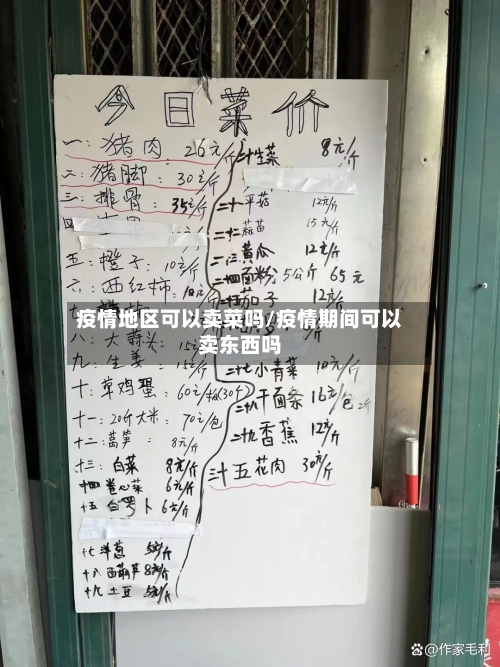 今日菜价
一：猪肉：26元/斤
二：猪脚：30元/斤
三：排骨：35元/斤
四
五：橙子：10元/斤
六：西红柿：
八：大蒜头：15元/斤
九：生姜：15元/斤
十：草鸡蛋：60元/板(30个)
十一：20斤大米：70元/包
十二：莴笋：8元/斤
十三：白菜 8元/斤
十四 卷心菜 6元/斤
十五 白罗卜 6元/斤
十七 洋葱 5元/斤
十八 西葫芦 8元/斤
十九 土豆 5元/斤
二十生菜 8元/斤
二十一 平菇 12元/斤
二十二 蒜苗 15元/斤
二十三 黄瓜 12元/斤
二十四面粉 5公斤 65元
茄子 12元/斤
疫情地区可以卖菜吗/疫情期间可以
卖东西吗
二十七小青菜 10元/斤
二十八干面条 16元/包 2斤
二十九香蕉 12元/斤
三十五花肉 30元/斤
头条 @作家毛利